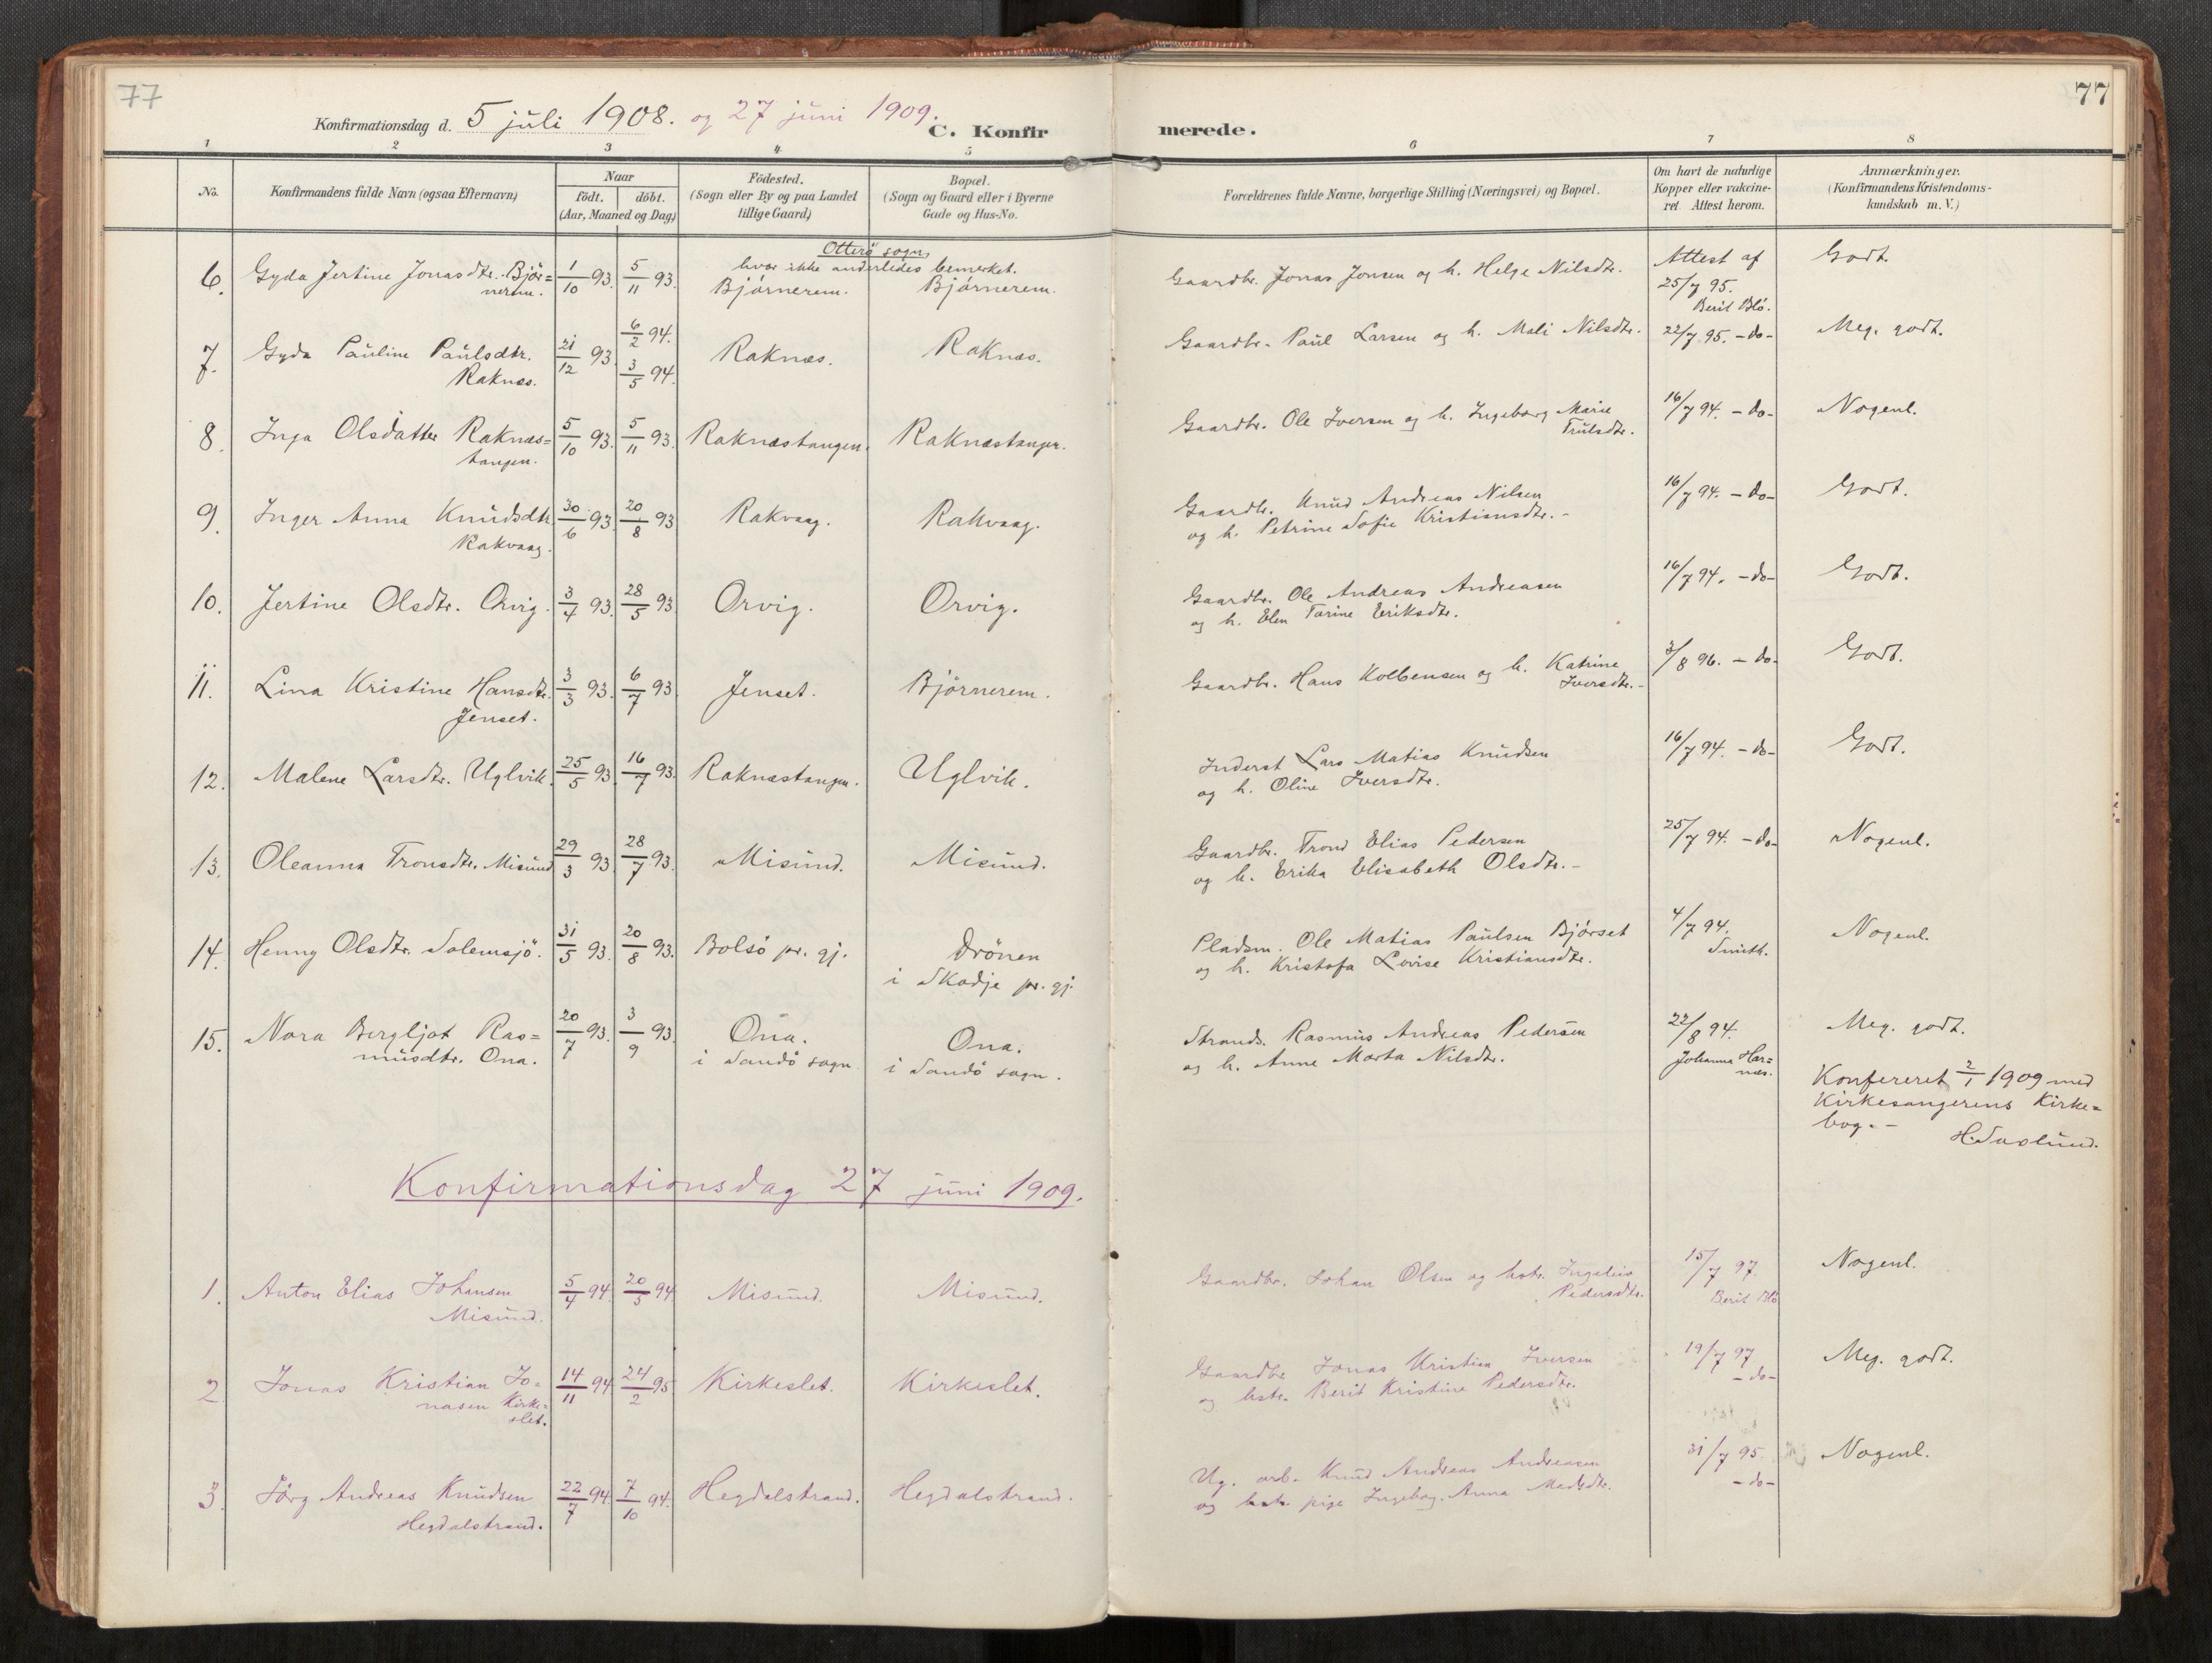 77
77
Konfirmationsdag d. 5 juli 1908. og 27 juni 1909.
C. Konfirmerede.
1 2 3 4 5 6 7 8
No.
Konfirmandens fulde Navn (ogsaa Efternavn)
Naar
födt. döbt.
(Aar, Maaned og Dag)
Födested.
(Sogn eller By og paa Landet
tillige Gaard)
Bopæl.
(Sogn og Gaard eller i Byerne
Gade og Hus-No.
Forældrenes fulde Navne, borgerlige Stilling (Næringsvei) og Bopæl.
Om havt de naturlige
Kopper eller vakcine-
ret. Attest herom.
Anmærkninger.
(Konfirmandens Kristendoms-
kundskab m. V.)
Otterö sogn,
hvor ikke anderledes bemerket.
6. Gyda Jertine Jonasdtr. Björ=
nerem.
1/10 93. 5/11 93. Björnerem. Björnerem.
Gaardbr. Jonas Jonsen og h. Helge Nilsdtr.
Attest af
25/7 95.
Berit Blö.
Godt.
7. Gyda Pauline Paulsdtr.
Raknæs.
21/12 93. 6/2 94.
3/5 94.
Raknæs. Raknæs.
Gaardbr. Paul Larsen og h. Mali Nilsdtr.
22/7 95. - do-
Meg. godt.
8. Inga Olsdatter Raknæs=
tangen.
5/10 93. 5/11 93. Raknæstangen. Raknæstangen.
Gaardbr. Ole Iversen og h. Ingeborg Marie
Trulsdtr.
16/7 94. - do-
Nogenl.
9. Inger Anna Knudsdtr.
Rakvaag.
30/6 93. 20/8 93 Rakvaag. Rakvaag.
Gaardb. Knud Andreas Nilsen
og h. Petrine Sofie Kristiansdtr. -
16/7 94. - do-
Godt.
10. Jertine Olsdtr. Orvig.
3/4 93. 28/5 93 Orvig. Orvig.
Gaardbr. Ole Andreas Andreasen
og h. Elen Tarine Eriksdtr.
16/7 94. - do-
Godt.
11. Lina Kristine Hansdtr.
Jenset.
3/3 93. 6/7 93 Jenset. Björnerem.
Gaardbr. Hans Kolbensen og h. Katrine
Iversdtr. -
3/8 96. - do-
Godt.
12. Malene Larsdtr. Uglvik.
25/5 93 16/7 93. Raknæstangen. Uglvik.
Inderst Lars Matias Knudsen
og h. Oline Iversdtr.
16/7 94. - do-
Godt.
13. Oleanna Tronsdtr. Misund
29/3 93 28/7 93. Misund. Misund.
Gaardbr. Trond Elias Pedersen
og h. Erika Elisabeth Olsdtr. -
25/7 94. - do-
Nogenl.
14. Henny Olsdtr. Solemsjö.
31/5 93. 20/8 93. Bolsö pr. gj. Drönen
i Skodje pr. gj.
Pladsm. Ole Matias Paulsen Björset
og h. Kristofa Lovise Kristiansdtr.
4/7 94.
Smith.
Nogenl.
15. Nora Bergljot Ras=
musdtr. Ona.
20/7 93. 3/9 93. Ona.
i Sandö sogn.
Ona.
i Sandö sogn.
Strands. Rasmus Andreas Pedersen
og h. Anne Marta Nilsdtr.
22/8 94.
Johanna Har=
næs.
Meg. godt.
Konfereret 2/1 1909 med
Kirkesangerens Kirke=
bog. -
Konfirmationsdag 27 juni 1909.
1. Anton Elias Johansen
Misund.
5/4 94. 20/5 94 Misund. Misund.
Gaardbr. Johan Olsen og hstr. Ingeleiv
Pedersdtr.
15/7 97.
Berit Blö
Nogenl.
2. Jonas Kristian Jo-
nasen Kirke=
slet.
14/11 94 24/2 95 Kirkeslet. Kirkeslet.
Gaardbr. Jonas Kristian Iversen
og hstr. Berit Kristine Pedersdtr.
19/7 97
- do-
Meg. godt.
3. Jörg Andreas Knudsen
Hegdalstrand.
22/7 94. 7/10 94. Hegdalstrand. Hegdalstrand.
Ug. arb. Knud Andreas Andreasen
og pige Ingebog. Anna Madsdtr.
31/7 95.
- do-
Nogenl.